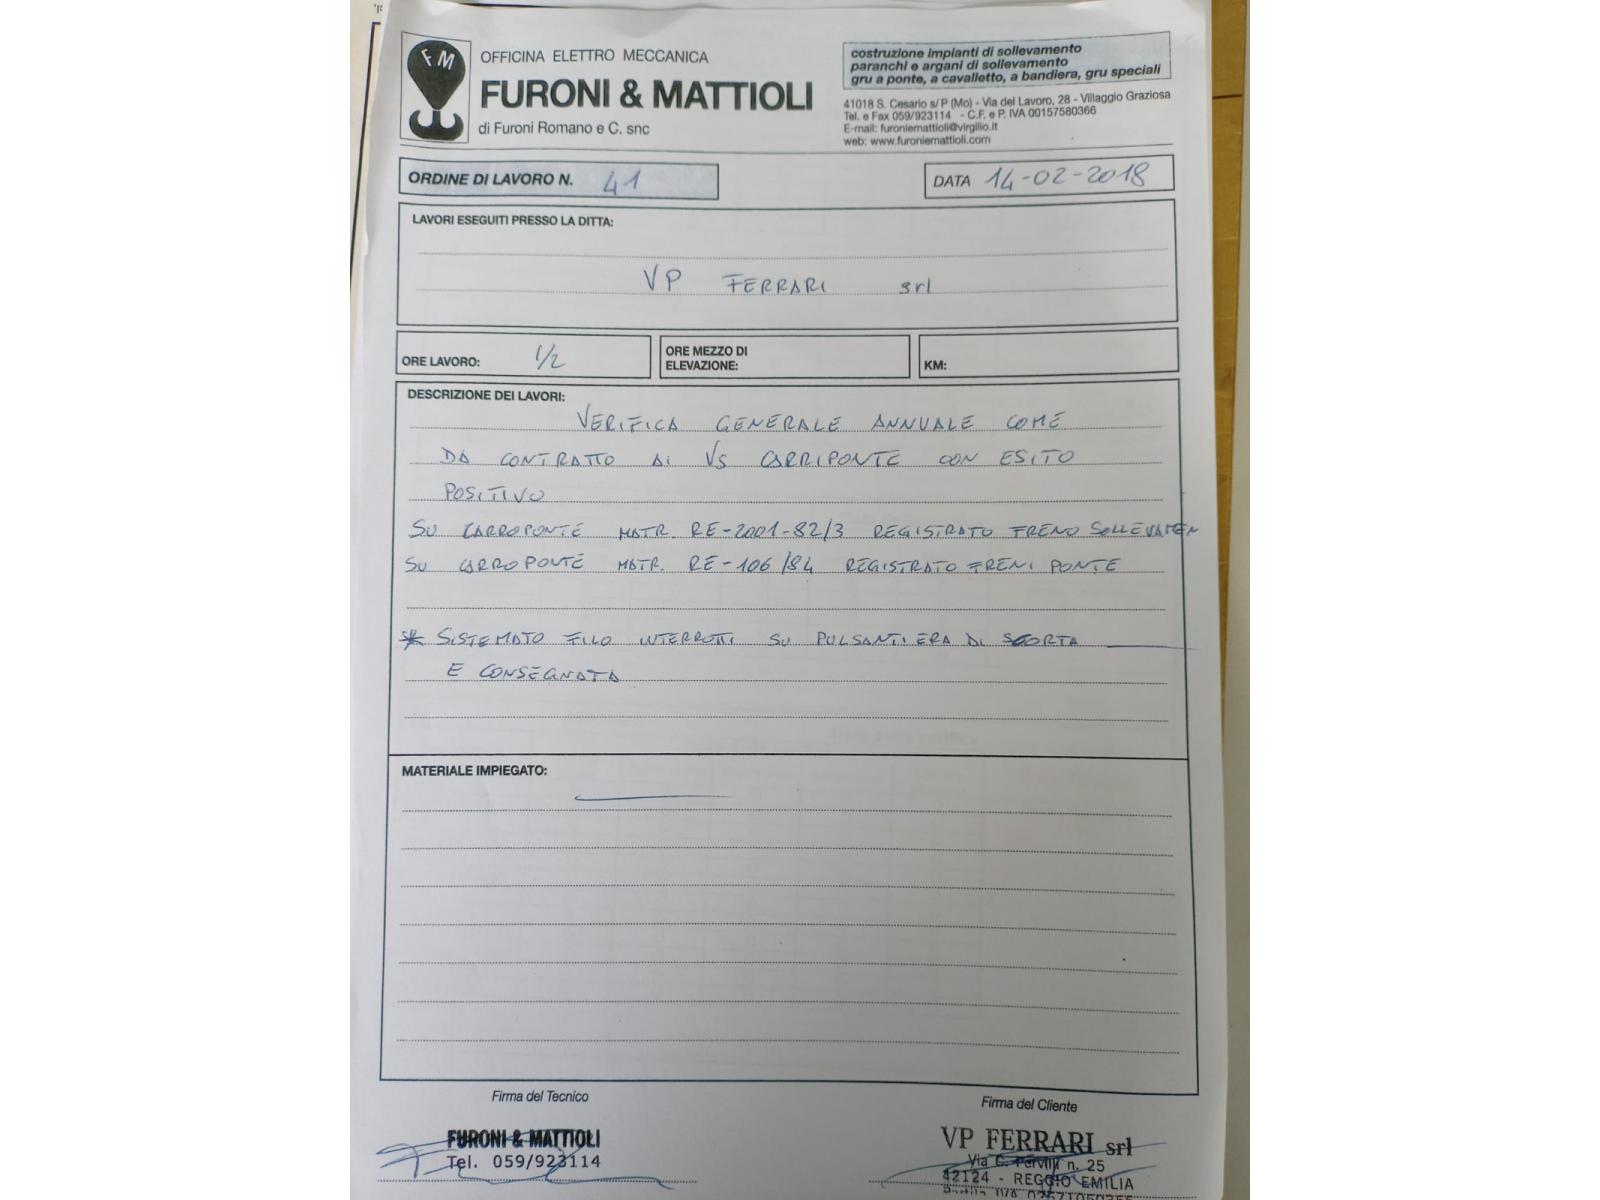 FM
OFFICINA ELETTRO MECCANICA
FURONI & MATTIOLI
di Furoni Romano e C. snc
costruzione impianti di sollevamento
paranchi e argani di sollevamento
gru a ponte, a cavalletto, a bandiera, gru speciali
41018 S. Cesario s/ P (Mo) - Via del Lavoro, 28 - Villaggio Graziosa
Tel. e Fax 059/923114 - C.F. e P. IVA 00157580366
E-mail: furoniemattioli@virgilio.it
web: www.furoniemattioli.com
ORDINE DI LAVORO N. 41
DATA 14-02-2018
LAVORI ESEGUITI PRESSO LA DITTA:
VP FERRARI srl
ORE LAVORO: 1/2
ORE MEZZO DI
ELEVAZIONE:
KM:
DESCRIZIONE DEI LAVORI:
VERIFICA GENERALE ANNUALE COME
DA CONTRATTO AI VS CARRIPONTE CON ESITO
POSITIVO
SU CARROPONTE MATR. RE-2001-82/3 REGISTRATO FRENO SOLLEVAMEN
SU CARROPONTE MATR. RE-106/84 REGISTRATO FRENI PONTE
* SISTEMATO FILO INTERROTTI SU PULSANTIERA DI SCORTA
E CONSEGNATA
MATERIALE IMPIEGATO:
Firma del Tecnico
Firma del Cliente
FURONI & MATTIOLI
Tel. 059/923114
VP FERRARI srl
Via n. 25
42124 - REGGIO EMILIA